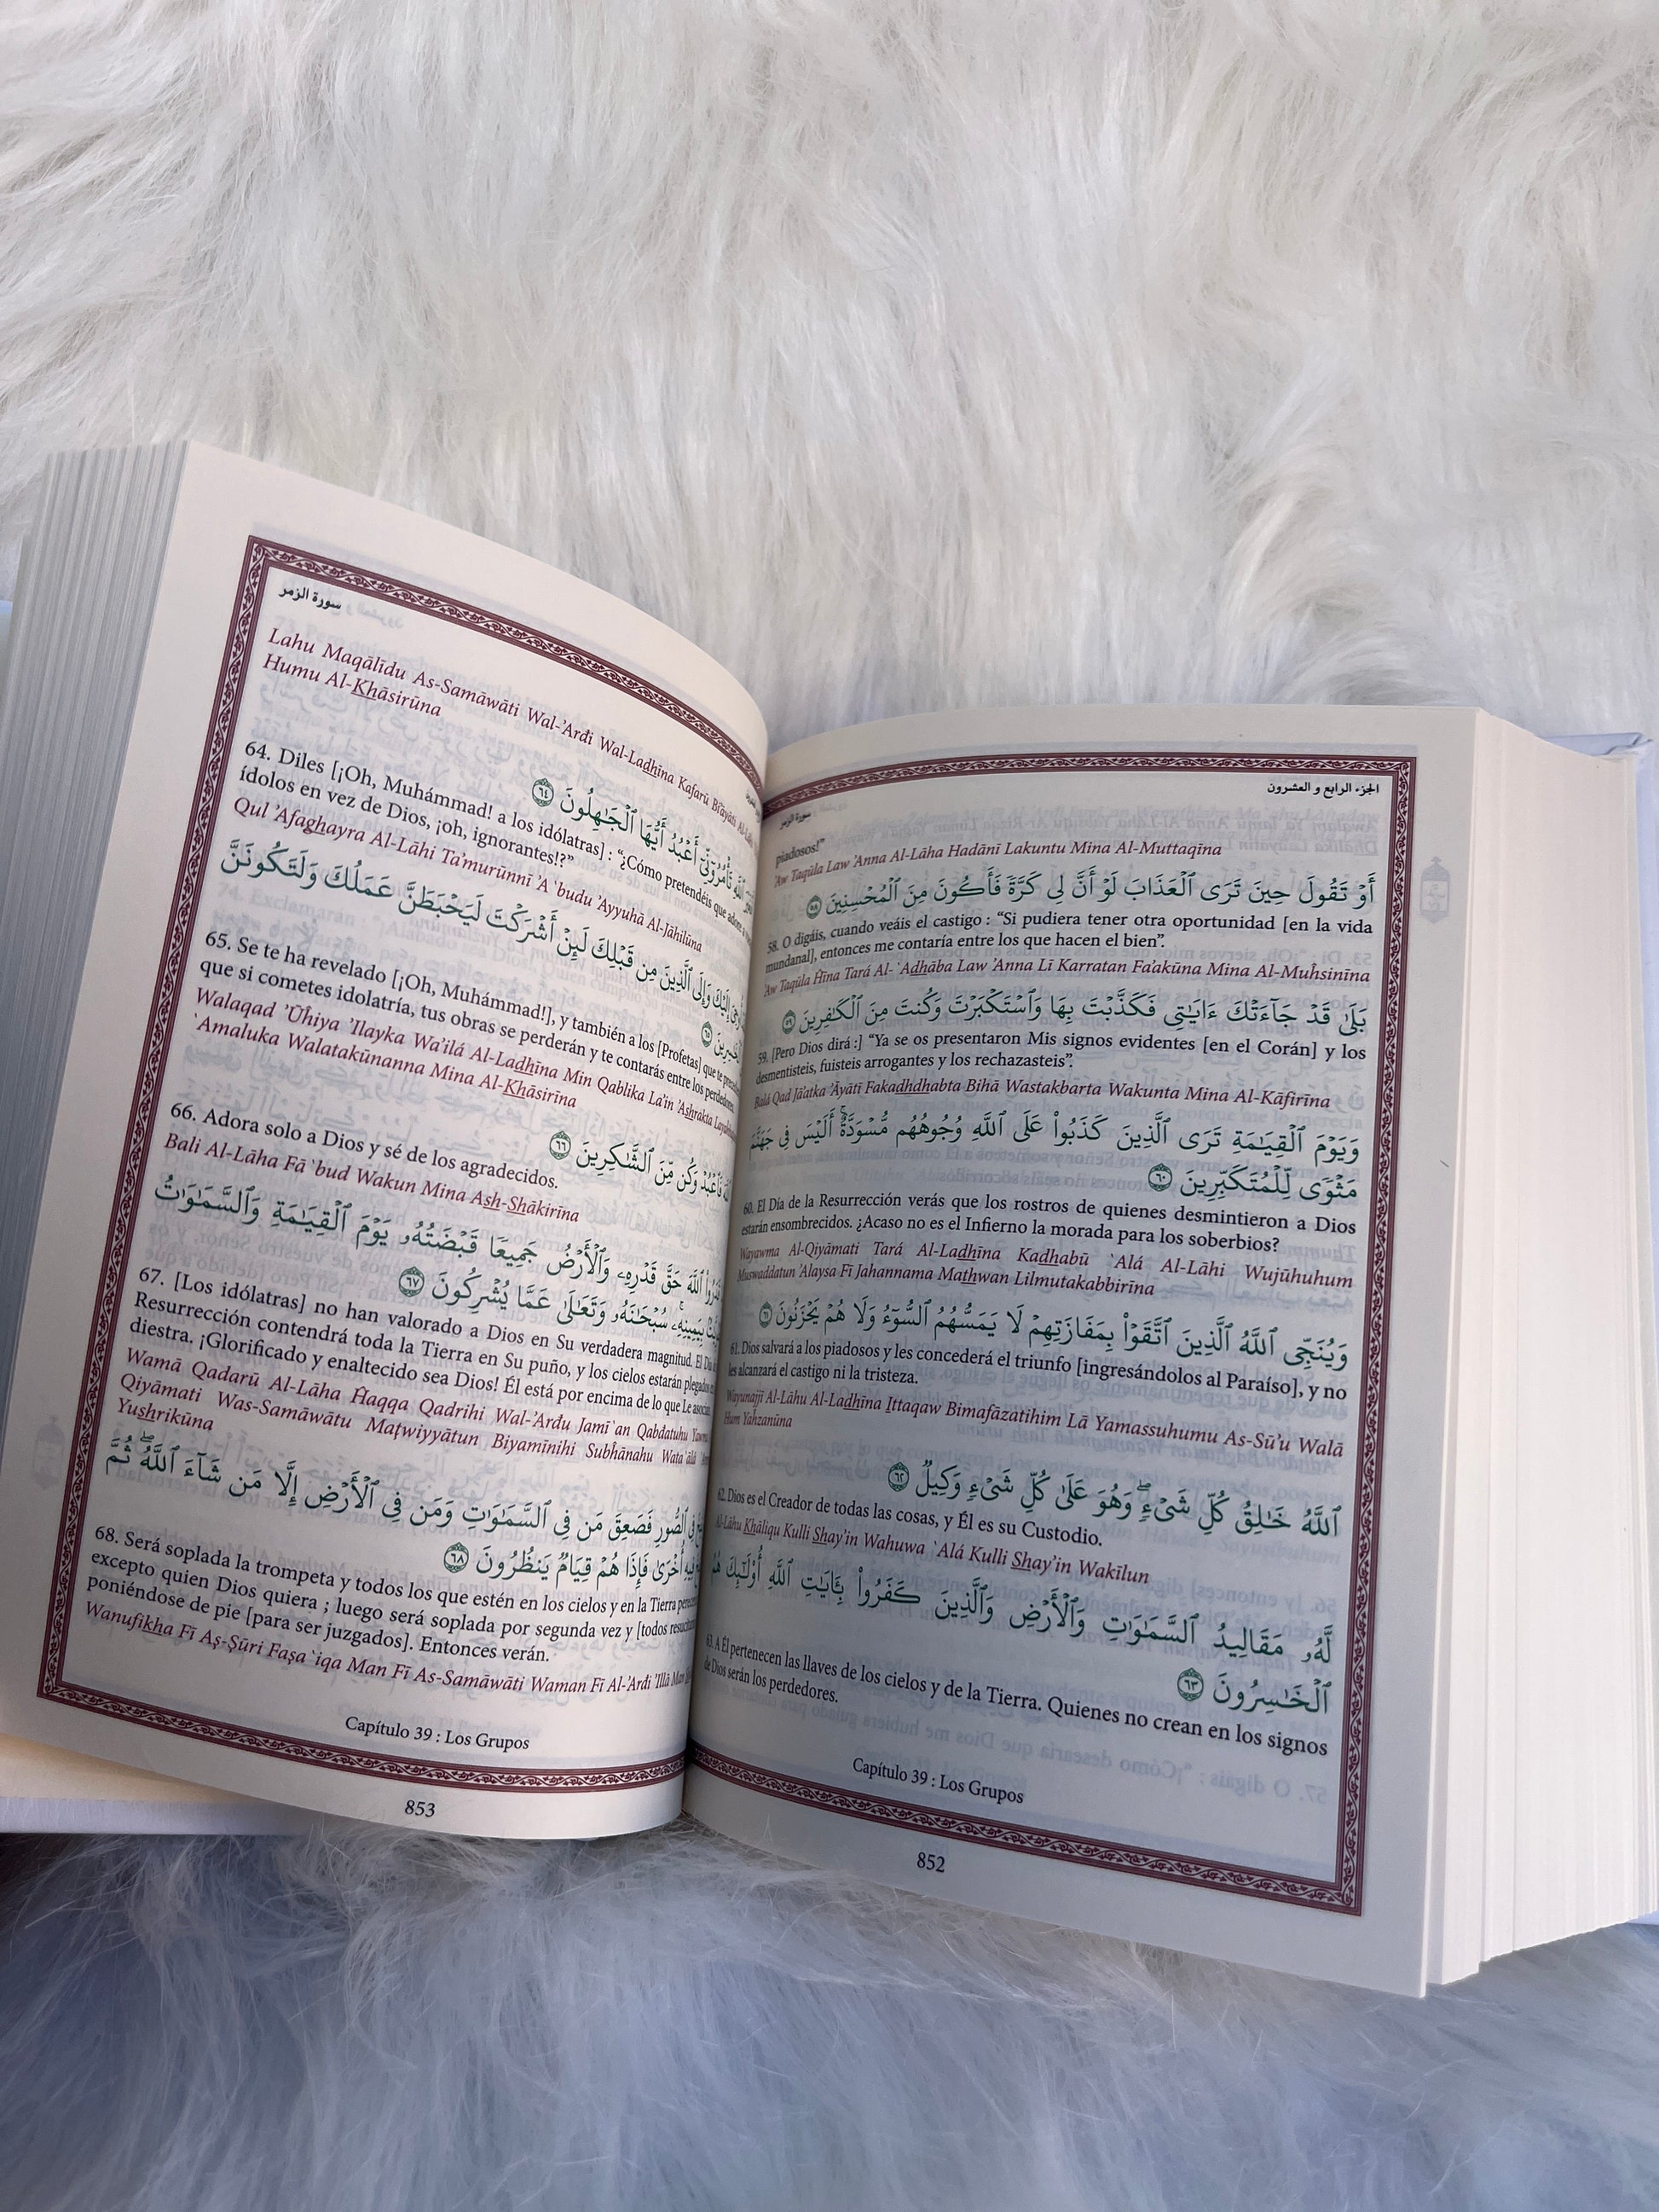 الجزء الرابع و العشرون
سورة الزمر
piadosos!”
’Aw Taqūla Law ’Anna Al-Lāha Hadānī Lakuntu Mina Al-Muttaqīna
أَوْ تَقُولَ حِينَ تَرَى ٱلْعَذَابَ لَوْ أَنَّ لِى كَرَّةً فَأَكُونَ مِنَ ٱلْمُحْسِنِينَ ٥٨
58. O digáis, cuando veáis el castigo : “Si pudiera tener otra oportunidad [en la vida
mundanal], entonces me contaría entre los que hacen el bien”.
’Aw Taqūla Ĥīna Tará Al-`Adhāba Law ’Anna Lī Karratan Fa’akūna Mina Al-Muĥsinīna
بَلَىٰ قَدْ جَآءَتْكَ ءَايَٰتِى فَكَذَّبْتَ بِهَا وَٱسْتَكْبَرْتَ وَكُنتَ مِنَ ٱلْكَٰفِرِينَ ٥٩
59. [Pero Dios dirá :] “Ya se os presentaron Mis signos evidentes [en el Corán] y los
desmentisteis, fuisteis arrogantes y los rechazasteis”.
Balá Qad Jā’atka ’Āyātī Fakadhdhabta Bihā Wastakbarta Wakunta Mina Al-Kāfirīna
وَيَوْمَ ٱلْقِيَٰمَةِ تَرَى ٱلَّذِينَ كَذَبُوا۟ عَلَى ٱللَّهِ وُجُوهُهُم مُّسْوَدَّةٌ ۚ أَلَيْسَ فِى جَهَنَّمَ
مَثْوًى لِّلْمُتَكَبِّرِينَ ٦٠
60. El Día de la Resurrección verás que los rostros de quienes desmintieron a Dios
estarán ensombrecidos. ¿Acaso no es el Infierno la morada para los soberbios?
Wayawma Al-Qiyāmati Tará Al-Ladhīna Kadhabū `Alá Al-Lāhi Wujūhuhum
Muswaddatun ’Alaysa Fī Jahannama Mathwan Lilmutakabbirīna
وَيُنَجِّى ٱللَّهُ ٱلَّذِينَ ٱتَّقَوْا۟ بِمَفَازَتِهِمْ لَا يَمَسُّهُمُ ٱلسُّوٓءُ وَلَا هُمْ يَحْزَنُونَ ٦١
61. Dios salvará a los piadosos y les concederá el triunfo [ingresándolos al Paraíso], y no
les alcanzará el castigo ni la tristeza.
Wayunajjī Al-Lāhu Al-Ladhīna Ittaqaw Bimafāzatihim Lā Yamassuhumu As-Sū’u Walā
Hum Yaĥzanūna
ٱللَّهُ خَٰلِقُ كُلِّ شَىْءٍ ۖ وَهُوَ عَلَىٰ كُلِّ شَىْءٍ وَكِيلٌ ٦٢
62. Dios es el Creador de todas las cosas, y Él es su Custodio.
Al-Lāhu Khāliqu Kulli Shay’in Wahuwa `Alá Kulli Shay’in Wakīlun
لَّهُۥ مَقَالِيدُ ٱلسَّمَٰوَٰتِ وَٱلْأَرْضِ وَٱلَّذِينَ كَفَرُوا۟ بِـَٔايَٰتِ ٱللَّهِ أُو۟لَٰٓئِكَ هُمُ
ٱلْخَٰسِرُونَ ٦٣
63. A Él pertenecen las llaves de los cielos y de la Tierra. Quienes no crean en los signos
de Dios serán los perdedores.
Capítulo 39 : Los Grupos
852
سورة الزمر
Lahu Maqālīdu As-Samāwāti Wal-’Arđi Wal-Ladhīna Kafarū Bi’āyāti Al-Lāhi
Humu Al-Khāsirūna
تَأْمُرُوٓنِّىٓ أَعْبُدُ أَيُّهَا ٱلْجَٰهِلُونَ ٦٤
64. Diles [¡Oh, Muhámmad! a los idólatras] : “¿Cómo pretendéis que adore a
ídolos en vez de Dios, ¡oh, ignorantes!?”
Qul ’Afaghayra Al-Lāhi Ta’murūnnī ’A`budu ’Ayyuhā Al-Jāhilūna
إِلَيْكَ وَإِلَى ٱلَّذِينَ مِن قَبْلِكَ لَئِنْ أَشْرَكْتَ لَيَحْبَطَنَّ عَمَلُكَ وَلَتَكُونَنَّ
٦٥
65. Se te ha revelado [¡Oh, Muhámmad!], y también a los [Profetas] que te
que si cometes idolatría, tus obras se perderán y te contarás entre los perdedores.
Walaqad ’Ūĥiya ’Ilayka Wa’ilá Al-Ladhīna Min Qablika La’in ’Ashrakta
`Amaluka Walatakūnanna Mina Al-Khāsirīna
فَٱعْبُدْ وَكُن مِّنَ ٱلشَّٰكِرِينَ ٦٦
66. Adora solo a Dios y sé de los agradecidos.
Bali Al-Lāha Fā`bud Wakun Mina Ash-Shākirīna
ٱللَّهَ حَقَّ قَدْرِهِۦ وَٱلْأَرْضُ جَمِيعًا قَبْضَتُهُۥ يَوْمَ ٱلْقِيَٰمَةِ وَٱلسَّمَٰوَٰتُ
بِيَمِينِهِۦ ۚ سُبْحَٰنَهُۥ وَتَعَٰلَىٰ عَمَّا يُشْرِكُونَ ٦٧
67. [Los idólatras] no han valorado a Dios en Su verdadera magnitud. El Día
Resurrección contendrá toda la Tierra en Su puño, y los cielos estarán plegados
diestra. ¡Glorificado y enaltecido sea Dios! Él está por encima de lo que Le
Wamā Qadarū Al-Lāha Ĥaqqa Qadrihi Wal-’Arđu Jamī`an Qabđatuhu Yawma
Qiyāmati Was-Samāwātu Maţwīyyātun Biyamīnihi Subĥānahu Wata`ālá
Yushrikūna
فِى ٱلصُّورِ فَصَعِقَ مَن فِى ٱلسَّمَٰوَٰتِ وَمَن فِى ٱلْأَرْضِ إِلَّا مَن شَآءَ ٱللَّهُ ۖ ثُمَّ
فِيهِ أُخْرَىٰ فَإِذَا هُمْ قِيَامٌ يَنظُرُونَ ٦٨
68. Será soplada la trompeta y todos los que estén en los cielos y en la Tierra
excepto quien Dios quiera ; luego será soplada por segunda vez y [todos
poniéndose de pie [para ser juzgados]. Entonces verán.
Wanufikha Fī Aş-Şūri Faşa`iqa Man Fī As-Samāwāti Waman Fī Al-’Arđi ’Illā Man
Capítulo 39 : Los Grupos
853